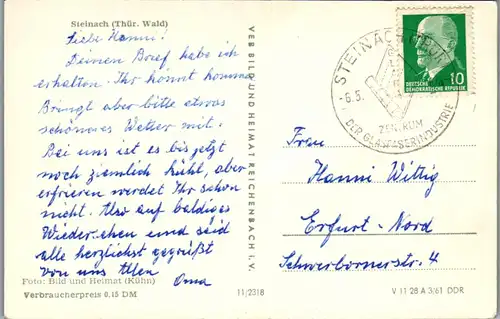 Steinach (Thür. Wald)
Liebe Hanni!
Deinen Brief habe ich
erhalten. Ihr könnt kommen
Bringt aber bitte etwas
schöneres Wetter mit.
Bei uns ist es bis jetzt
noch ziemlich kühl, aber
erfrieren werdet Ihr schon
nicht. Also auf baldiges
Wiedersehen und seid
alle herzlichst gegrüßt
von uns Allen
Oma
Foto: Bild und Heimat (Kühn)
Verbraucherpreis 0,15 DM
VEB BILD UND HEIMAT REICHENBACH I. V.
11/2318
STEINACH
-6.5.
ZENTRUM
DER GLASFASERINDUSTRIE
10
DEUTSCHE
DEMOKRATISCHE REPUBLIK
Frau
Hanni Wittig
Erfurt-Nord
Schwerbornerstr. 4
V 11 28 A 3/61 DDR